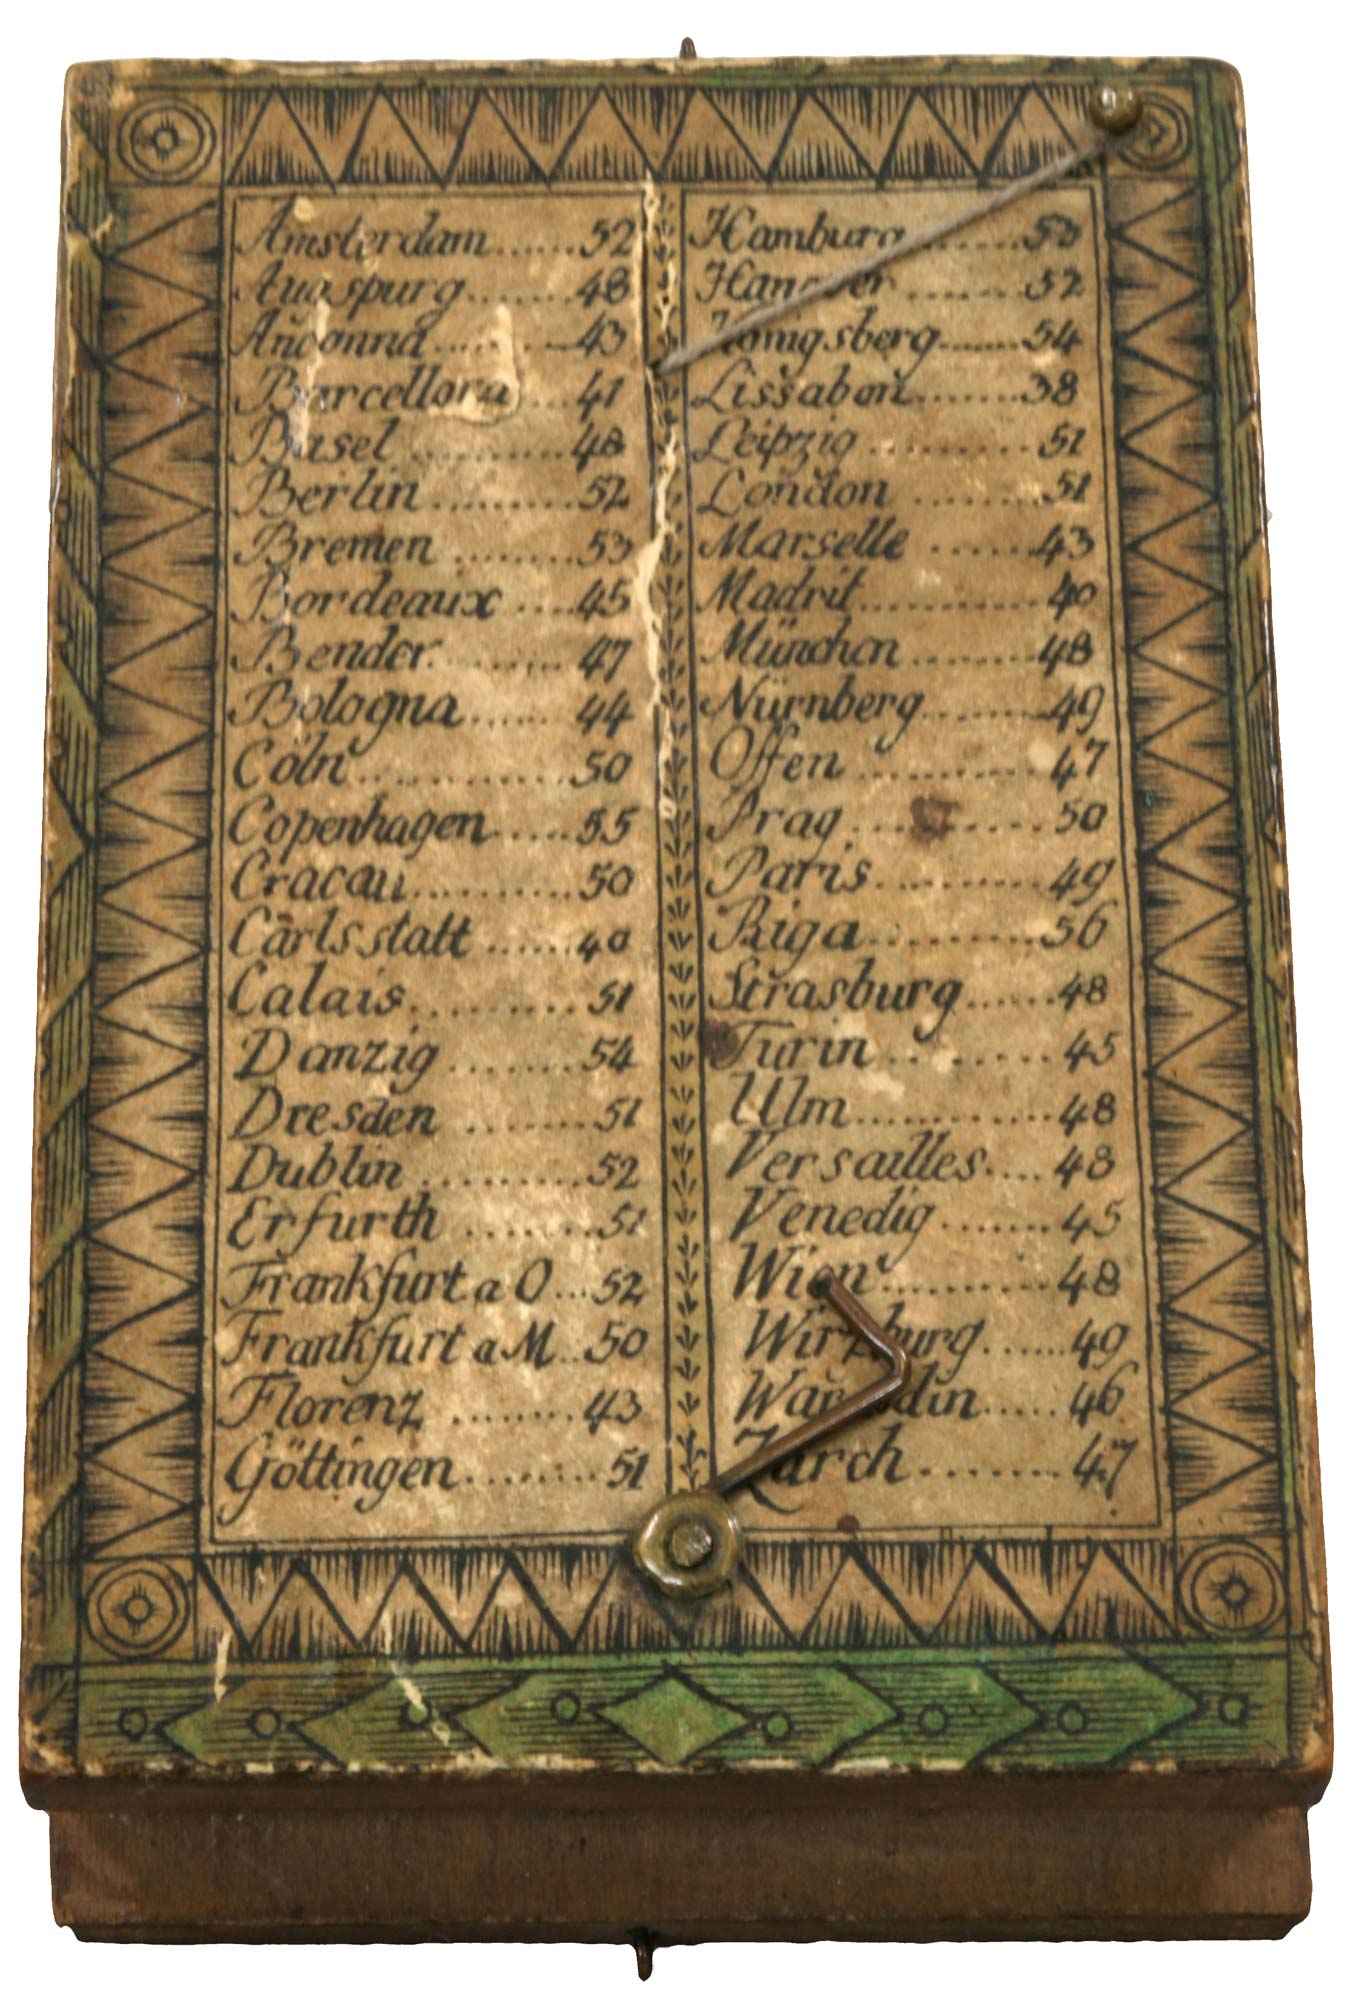 Amsterdam.......52
Augspurg.......48
Anconna.........43
Barcellona....41
Basel..........48
Berlin..........52
Bremen.........53
Bordeaux.....45
Bender........47
Bologna......44
Cöln............50
Copenhagen.....55
Cracau.........50
Cärlsstatt......40
Calais..........51
Danzig........54
Dresden.......51
Dublin.........52
Erfurth........51
Frankfurt a O...52
Frankfurt a M..50
Florenz.......43
Göttingen......51
Hamburg.......53
Hanover.......52
Königsberg.....54
Lissabon.......38
Leipzig.........51
London.......51
Marselle......43
Madrit.........40
München......48
Nürnberg......49
Offen.........47
Prag..........50
Paris.........49
Riga..........56
Strasburg.....48
Turin.........45
Ulm...........48
Versailles....48
Venedig.......45
Wien..........48
Wirzburg......49
46
Zürch........47